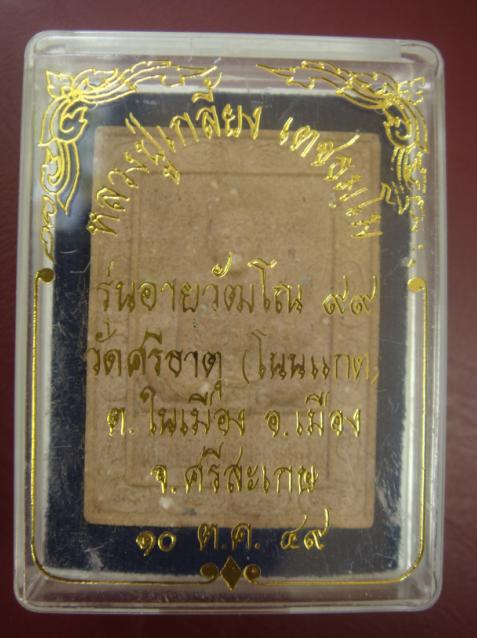 หลวงปู่เกลี้ยง เตชธมฺโม
รุ่นอายุวัฒโณ ๙๙
วัดศรีธาตุ (โนนแกด)
ต.ในเมือง อ.เมือง
จ.ศรีสะเกษ
๑๐ ต.ค. ๔๙